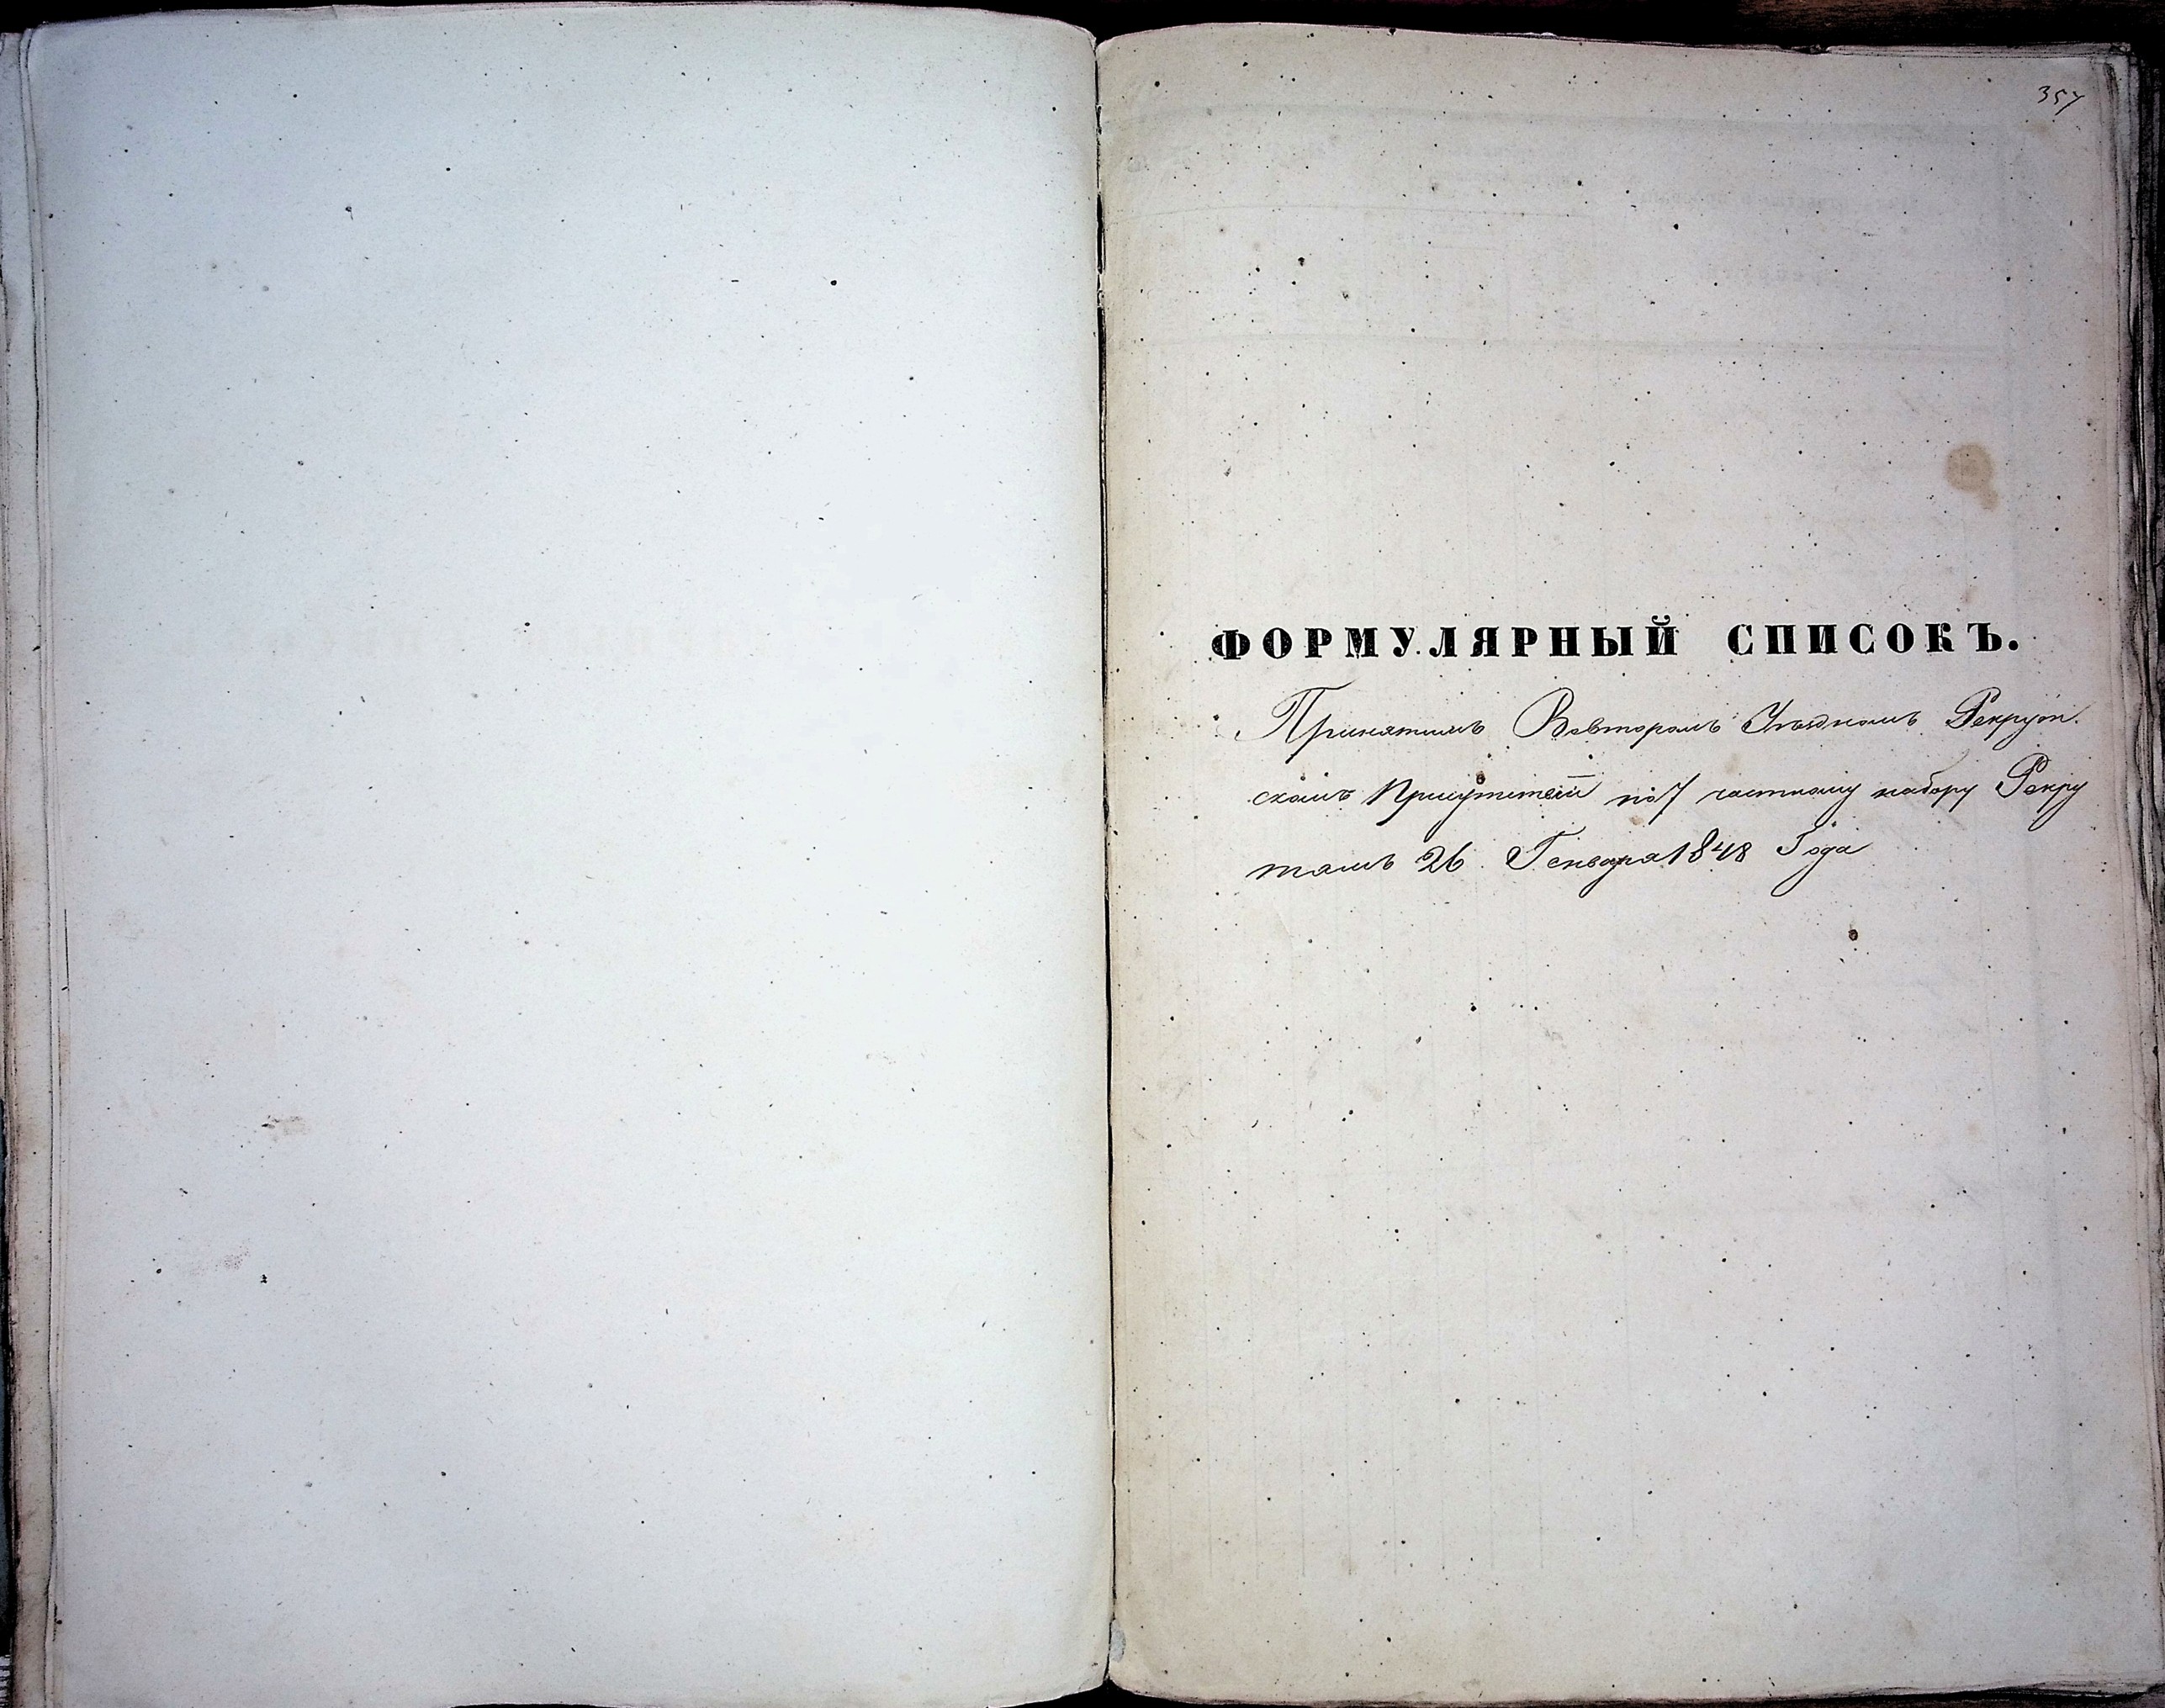 357
ФОРМУЛЯРНЫЙ СПИСОКЪ.
Принятымъ Вовторомъ Уѣздномъ Рекрут.
скомъ Присутствіи по 7 частному набору Рекру
тамъ 26 Генваря 1848 Года